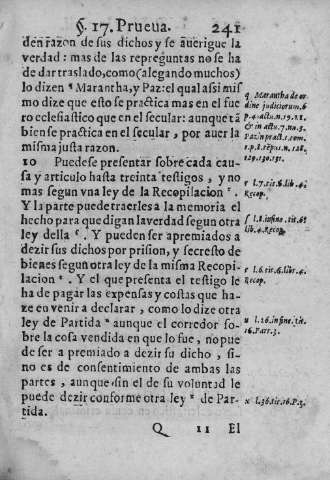 §. 17. Prueua. 241
den razon de sus dichos y se auerigue la
verdad: mas de las repreguntas no se ha
de dar traslado, como (alegando muchos)
lo dizen q Marantha, y Paz: el qual assi mis
mo dize que esto se practica mas en el fue
ro eclesiastico que en el secular: aunque tã
bien se practica en el secular, por auer la
misma justa razon.
10 Puedese presentar sobre cada cau-
sa y articulo hasta treinta testigos, y no
mas segun vna ley de la Recopilacion r.
Y la parte puede traerles a la memoria el
hecho para que digan la verdad segun otra
ley della s. Y pueden ser apremiados a
dezir sus dichos por prision, y secresto de
bienes segun otra ley de la misma Recopi-
lacion t. Y el que presenta el testigo le
ha de pagar las expensas y costas que ha-
ze en venir a declarar, como lo dize otra
ley de Partida u aunque el corredor so-
bre la cosa vendida en que lo fue, no pue
de ser a premiado a dezir su dicho, si-
no es de consentimiento de ambas las
partes, aunque sin el de su voluntad le
puede dezir conforme otra ley x de Par-
tida.
Q 11 El
q Marantha de or
dine judiciorum. 6
p. 4. actu. n. 19. 21
& in actu 7. nu. 5.
Paz in pract. 1. tom.
1. p. 8. tẽpus n. 128.
129. 130. 131.
r l. 7. tit. 6. lib. 4.
Recop.
s l. 8. infine. tit. 6.
lib. 4. Recop.
t l. 6. tit. 6. libr. 4.
Recop.
u l. 26. in fine. tit.
16. Part. 3.
x l. 36. tit. 16. P. 3.